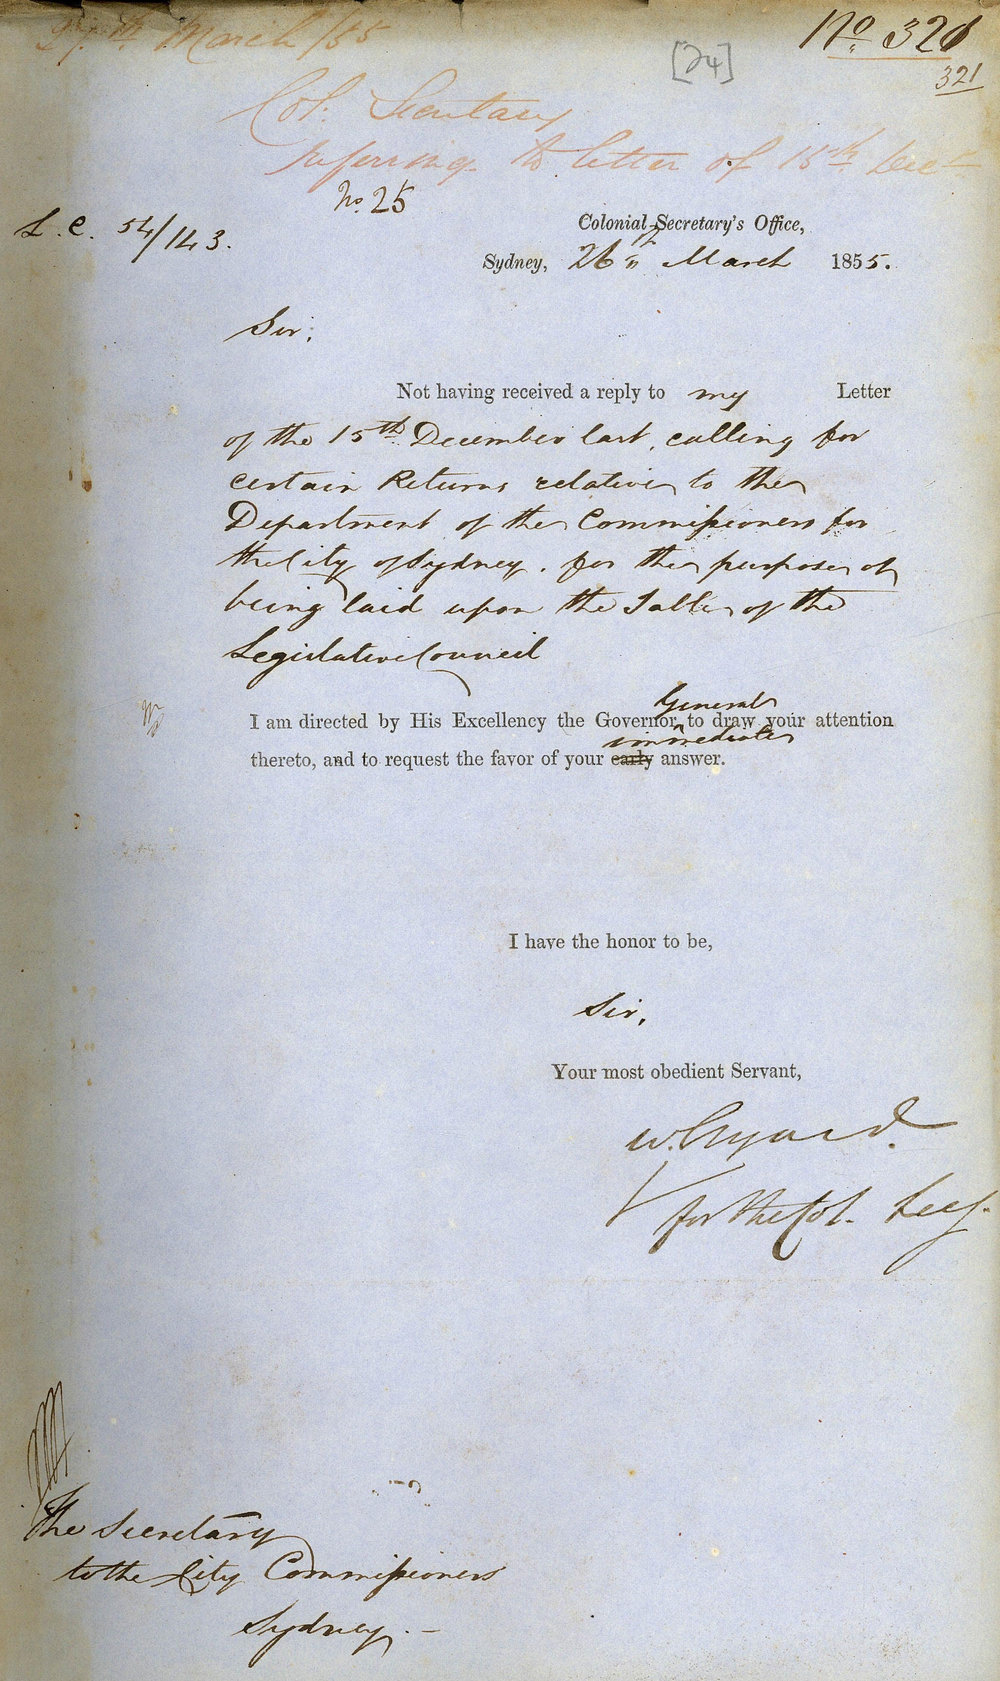 27th March /55
No 321
[24]
321
Col: Secretary
referring to letter of 15th Decr
No. 25
L.C. 54/143.
Colonial Secretary's Office,
Sydney, 26th March 1855.
Sir,
Not having received a reply to my Letter
of the 15th December last, calling for
certain Returns relative to the
Department of the Commissioners for
the City of Sydney, for the purpose of
being laid upon the Table of the
Legislative Council
General
I am directed by His Excellency the Governor, to draw your attention
immediate
thereto, and to request the favor of your early answer.
I have the honor to be,
Sir,
Your most obedient Servant,
for the Col. Secy.
The Secretary
to the City Commissioners
Sydney. —